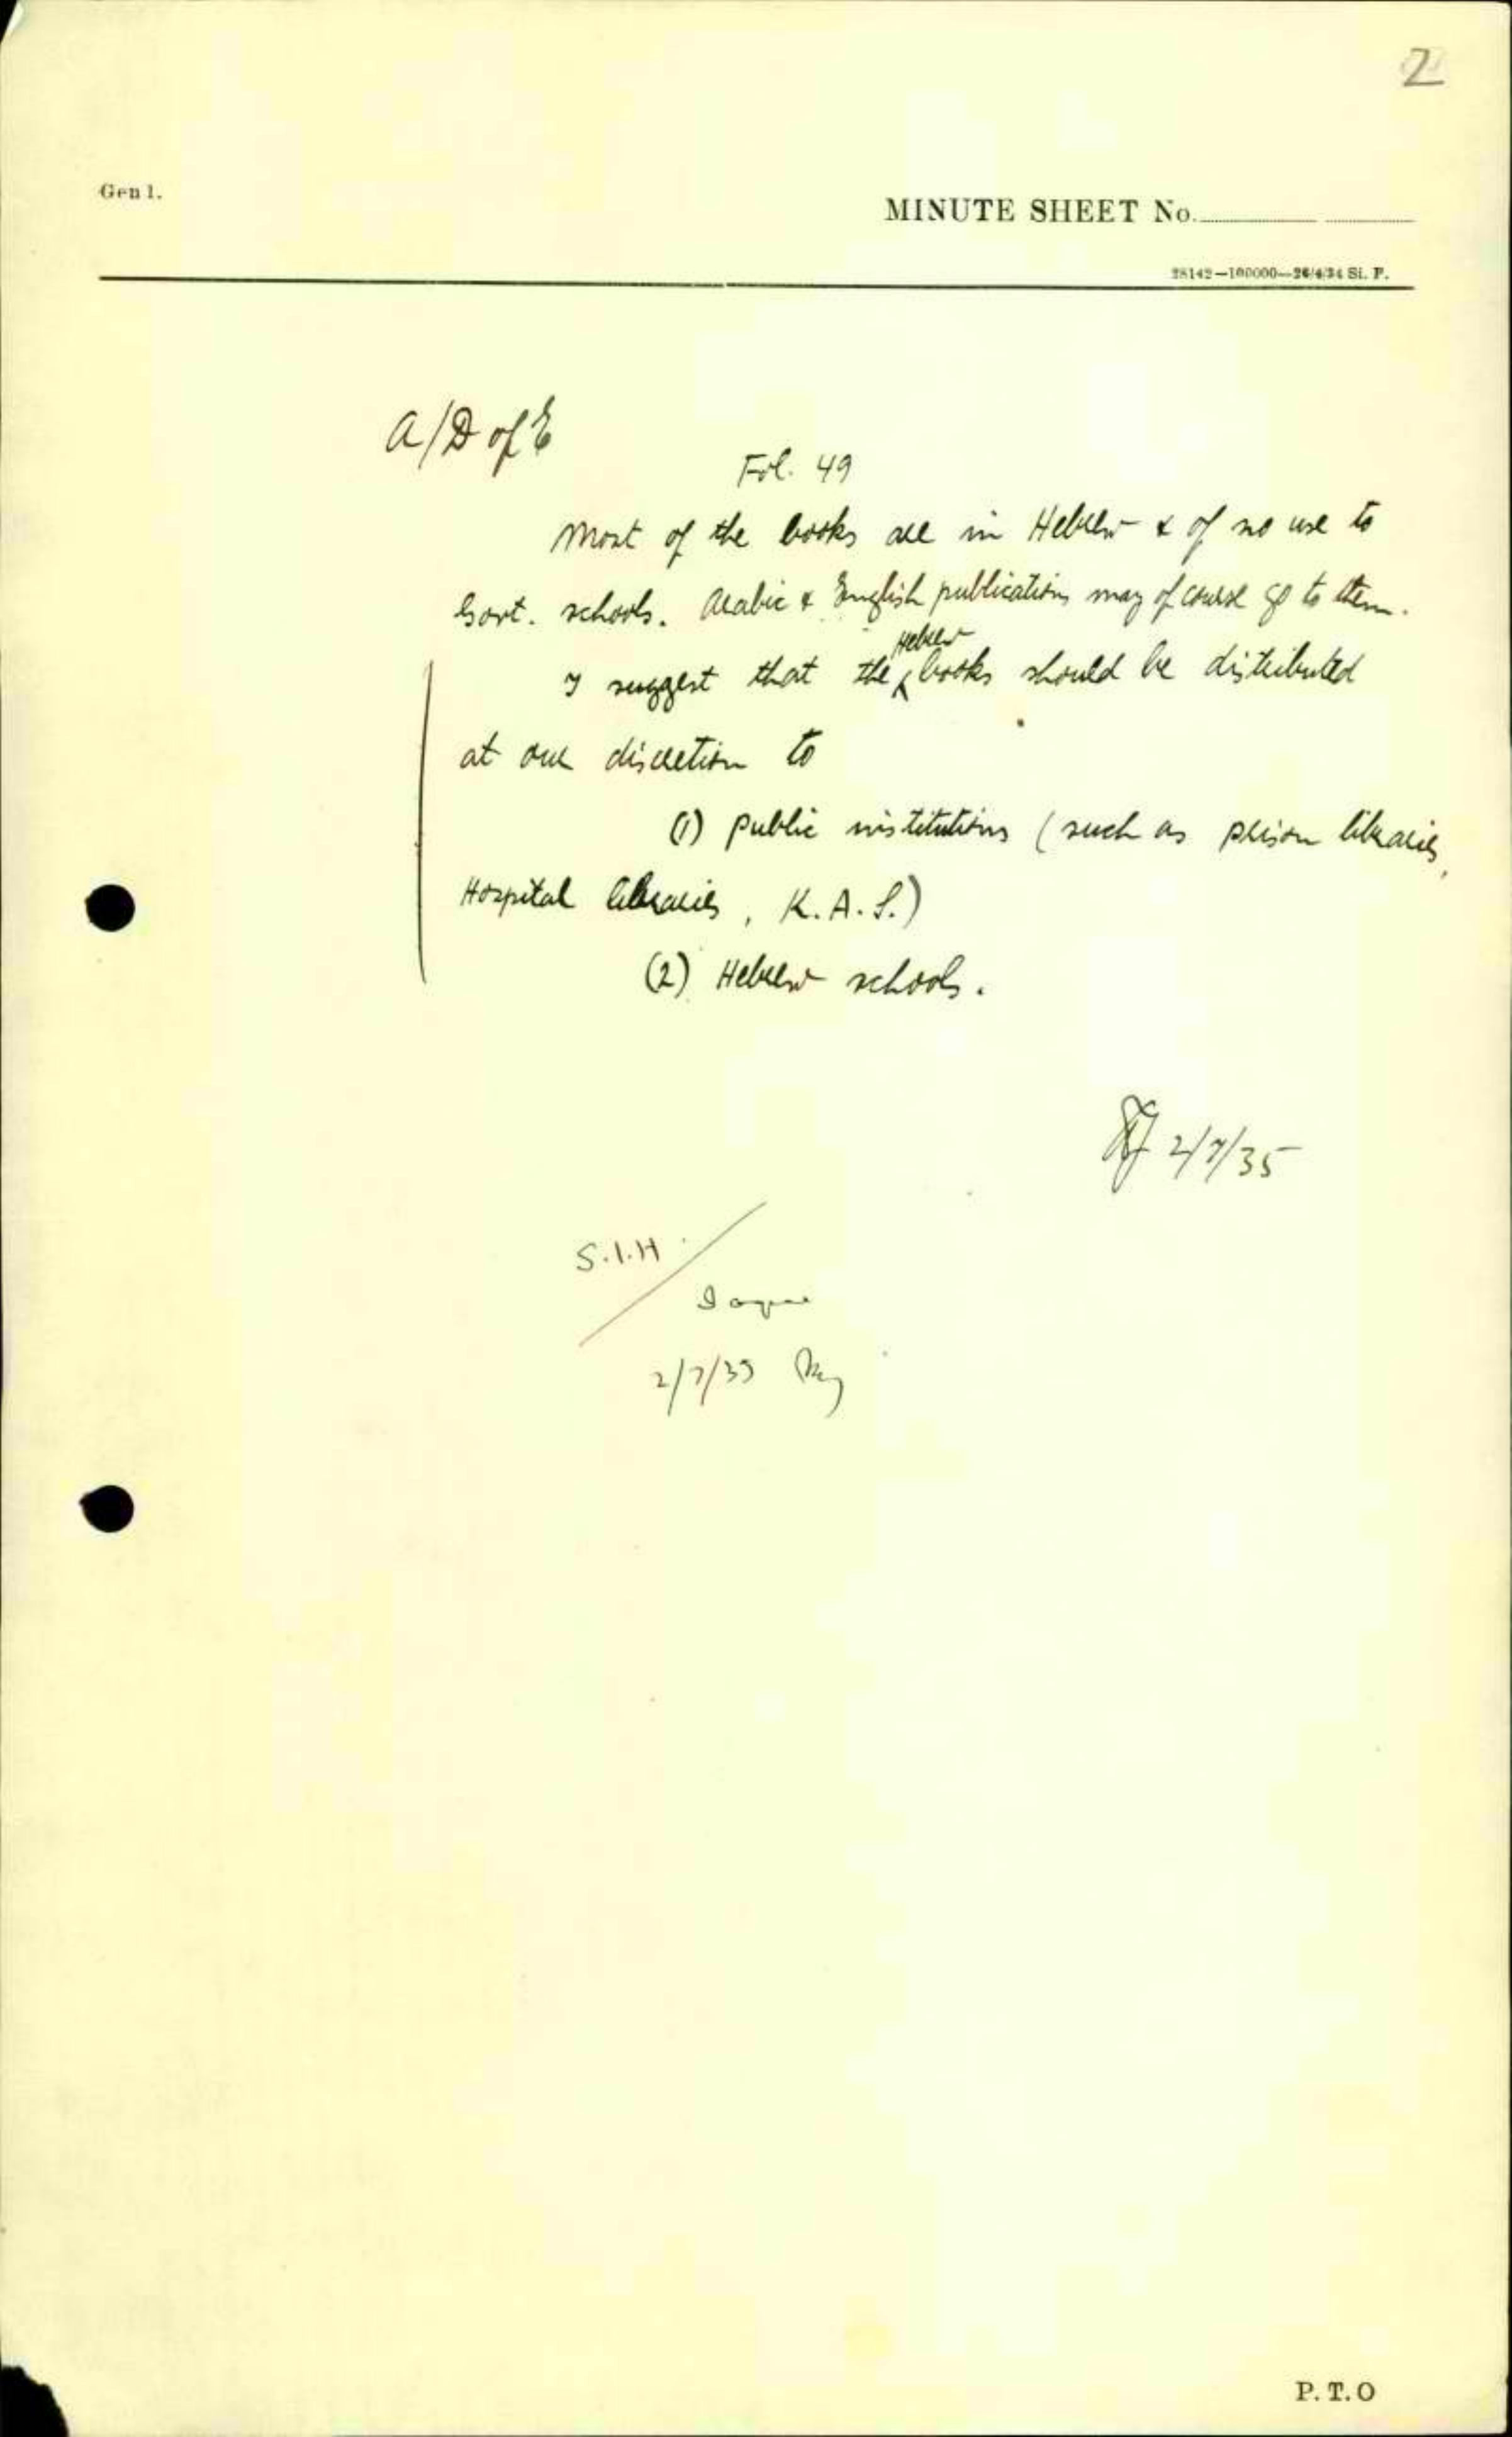 2
Gen 1.
MINUTE SHEET No.
28142—100000—26/4/34 Si. P.
A/D of E
Fol. 49
Most of the books are in Hebrew & of no use to
Govt. schools. Arabic & English publications may of course go to them.
Hebrew
I suggest that the books should be distributed
at our discretion to
(1) Public institutions (such as prison libraries,
Hospital libraries, K.A.S.)
(2) Hebrew schools.
2/7/35
S.I.H
I agree
2/7/35
P.T.O